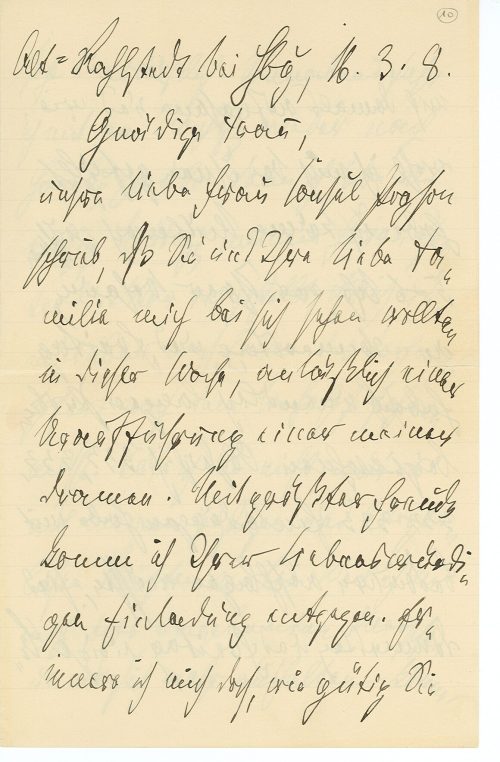 10
Alt=Rahlstedt bei Hbg, 16. 3. 8.
Gnädige Frau,
unsre liebe Frau Consul
schrieb, daß Sie und Ihre liebe Fa„
milie mich bei sich sehen wollten
in dieser Woche, anläßlich einer
Uraufführung einer meiner
Dramen. Mit größter Freude
komm ich Ihrer liebenswürdi„
gen Einladung entgegen. Er„
innere ich mich doch, wie gütig Sie